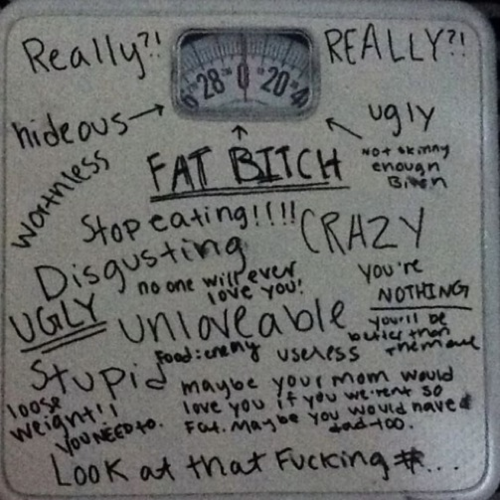 Really?!
REALLY?!
28 0 20 4
hideous
ugly
Not skinny
enough
Bitch
worthless
FAT BITCH
Stop eating!!!!
CRAZY
Disgusting
no one will ever
love you!
you're
NOTHING
UGLY
unloveable
you'll be
better than
them all
Food:enemy
useless
Stupid
loose
weight!!
YOU NEED to.
maybe your mom would
love you if you weren't so
Fat. Maybe you would have a
dad too.
Look at that Fucking #...